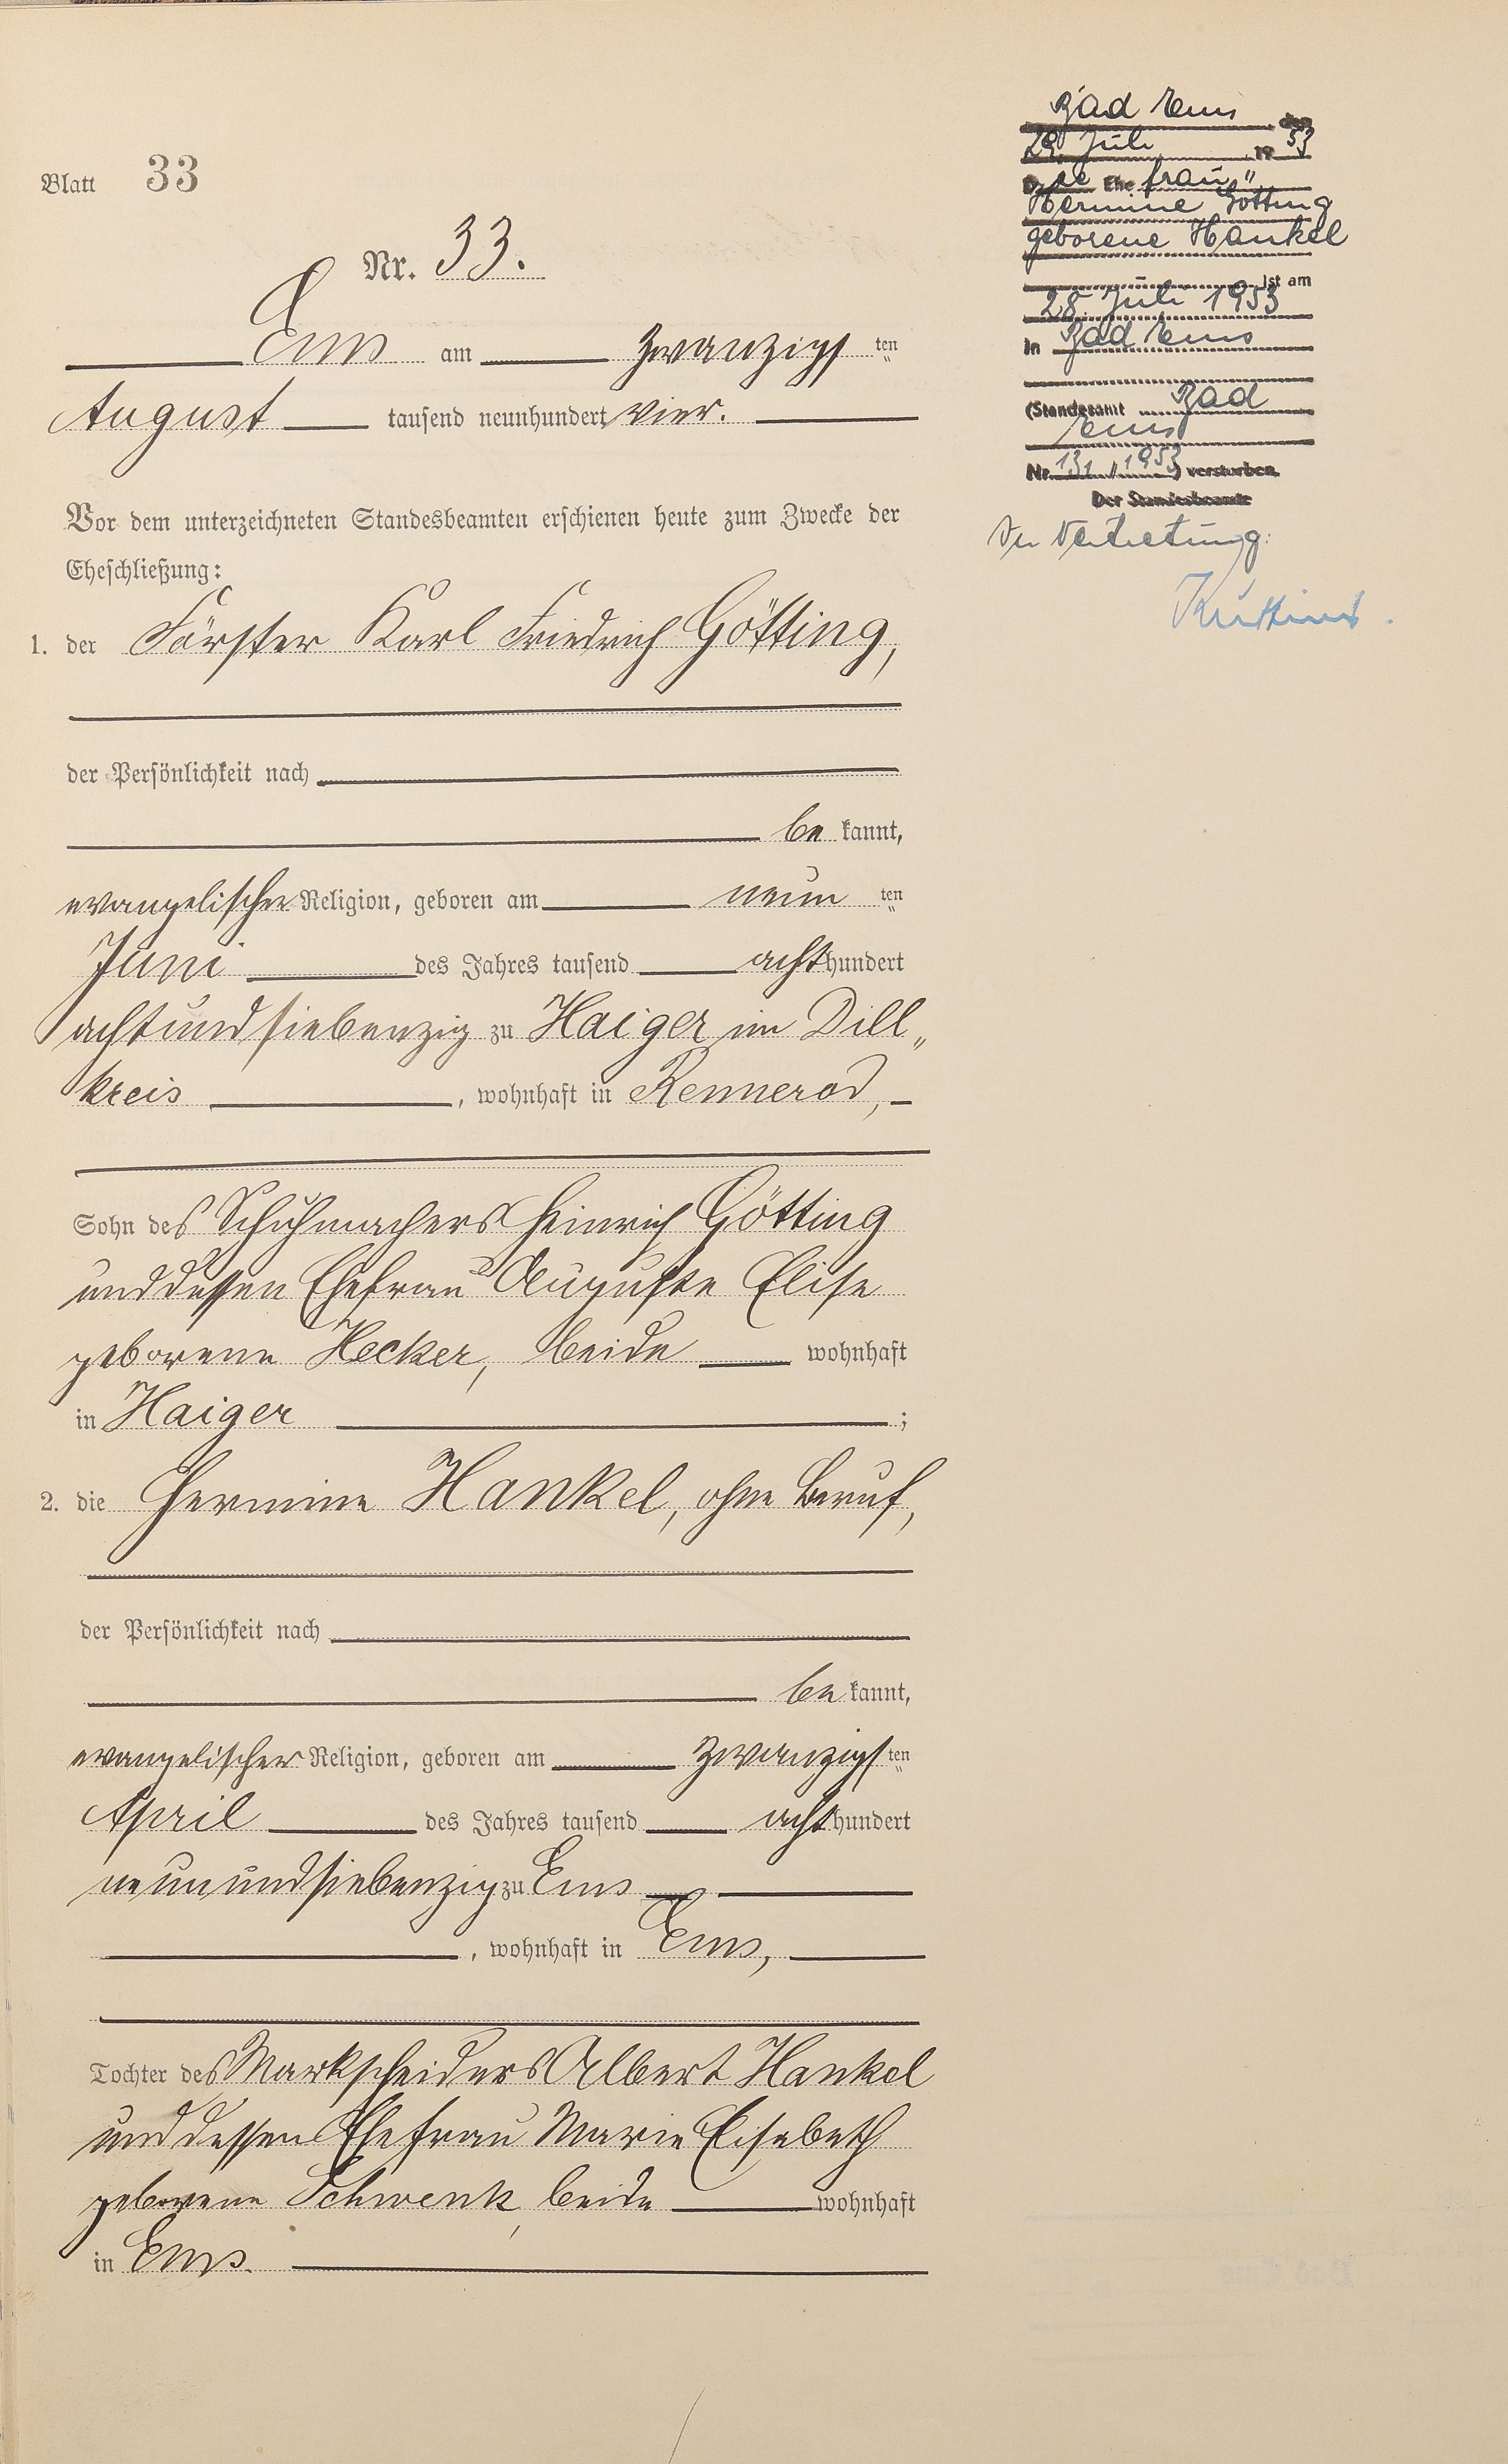 Blatt 33
Nr. 33.
Ems am zwanzigsten
August tausend neunhundert vier.
Vor dem unterzeichneten Standesbeamten erschienen heute zum Zwecke der
Eheschließung:
1. der Förster Karl Friedrich Götting,
der Persönlichkeit nach
be kannt,
evangelischer Religion, geboren am neun ten
Juni des Jahres tausend acht hundert
achtundsiebenzig zu Haiger im Dill„
kreis, wohnhaft in Rennerod,
Sohn des Schuhmachers Heinrich Götting
und dessen Ehefrau Auguste Elise
geborene Hecker, beide wohnhaft
in Haiger ;
2. die Hermine Hankel, ohne Beruf,
der Persönlichkeit nach
be kannt,
evangelischer Religion, geboren am zwanzigsten
April des Jahres tausend acht hundert
neunundsiebenzig zu Ems
, wohnhaft in Ems,
Tochter des Markscheiders Albert Hankel
und dessen Ehefrau Marie Elisabeth
geborene Schwenk, beide wohnhaft
in Ems.
Bad Ems, den
29. Juli 1953
Die Ehefrau
Hermine Götting
geborene Hankel
ist am
28. Juli 1953
in Bad Ems
(Standesamt Bad
Ems
Nr. 131/1953) verstorben.
Der Standesbeamte
In Vertretung: